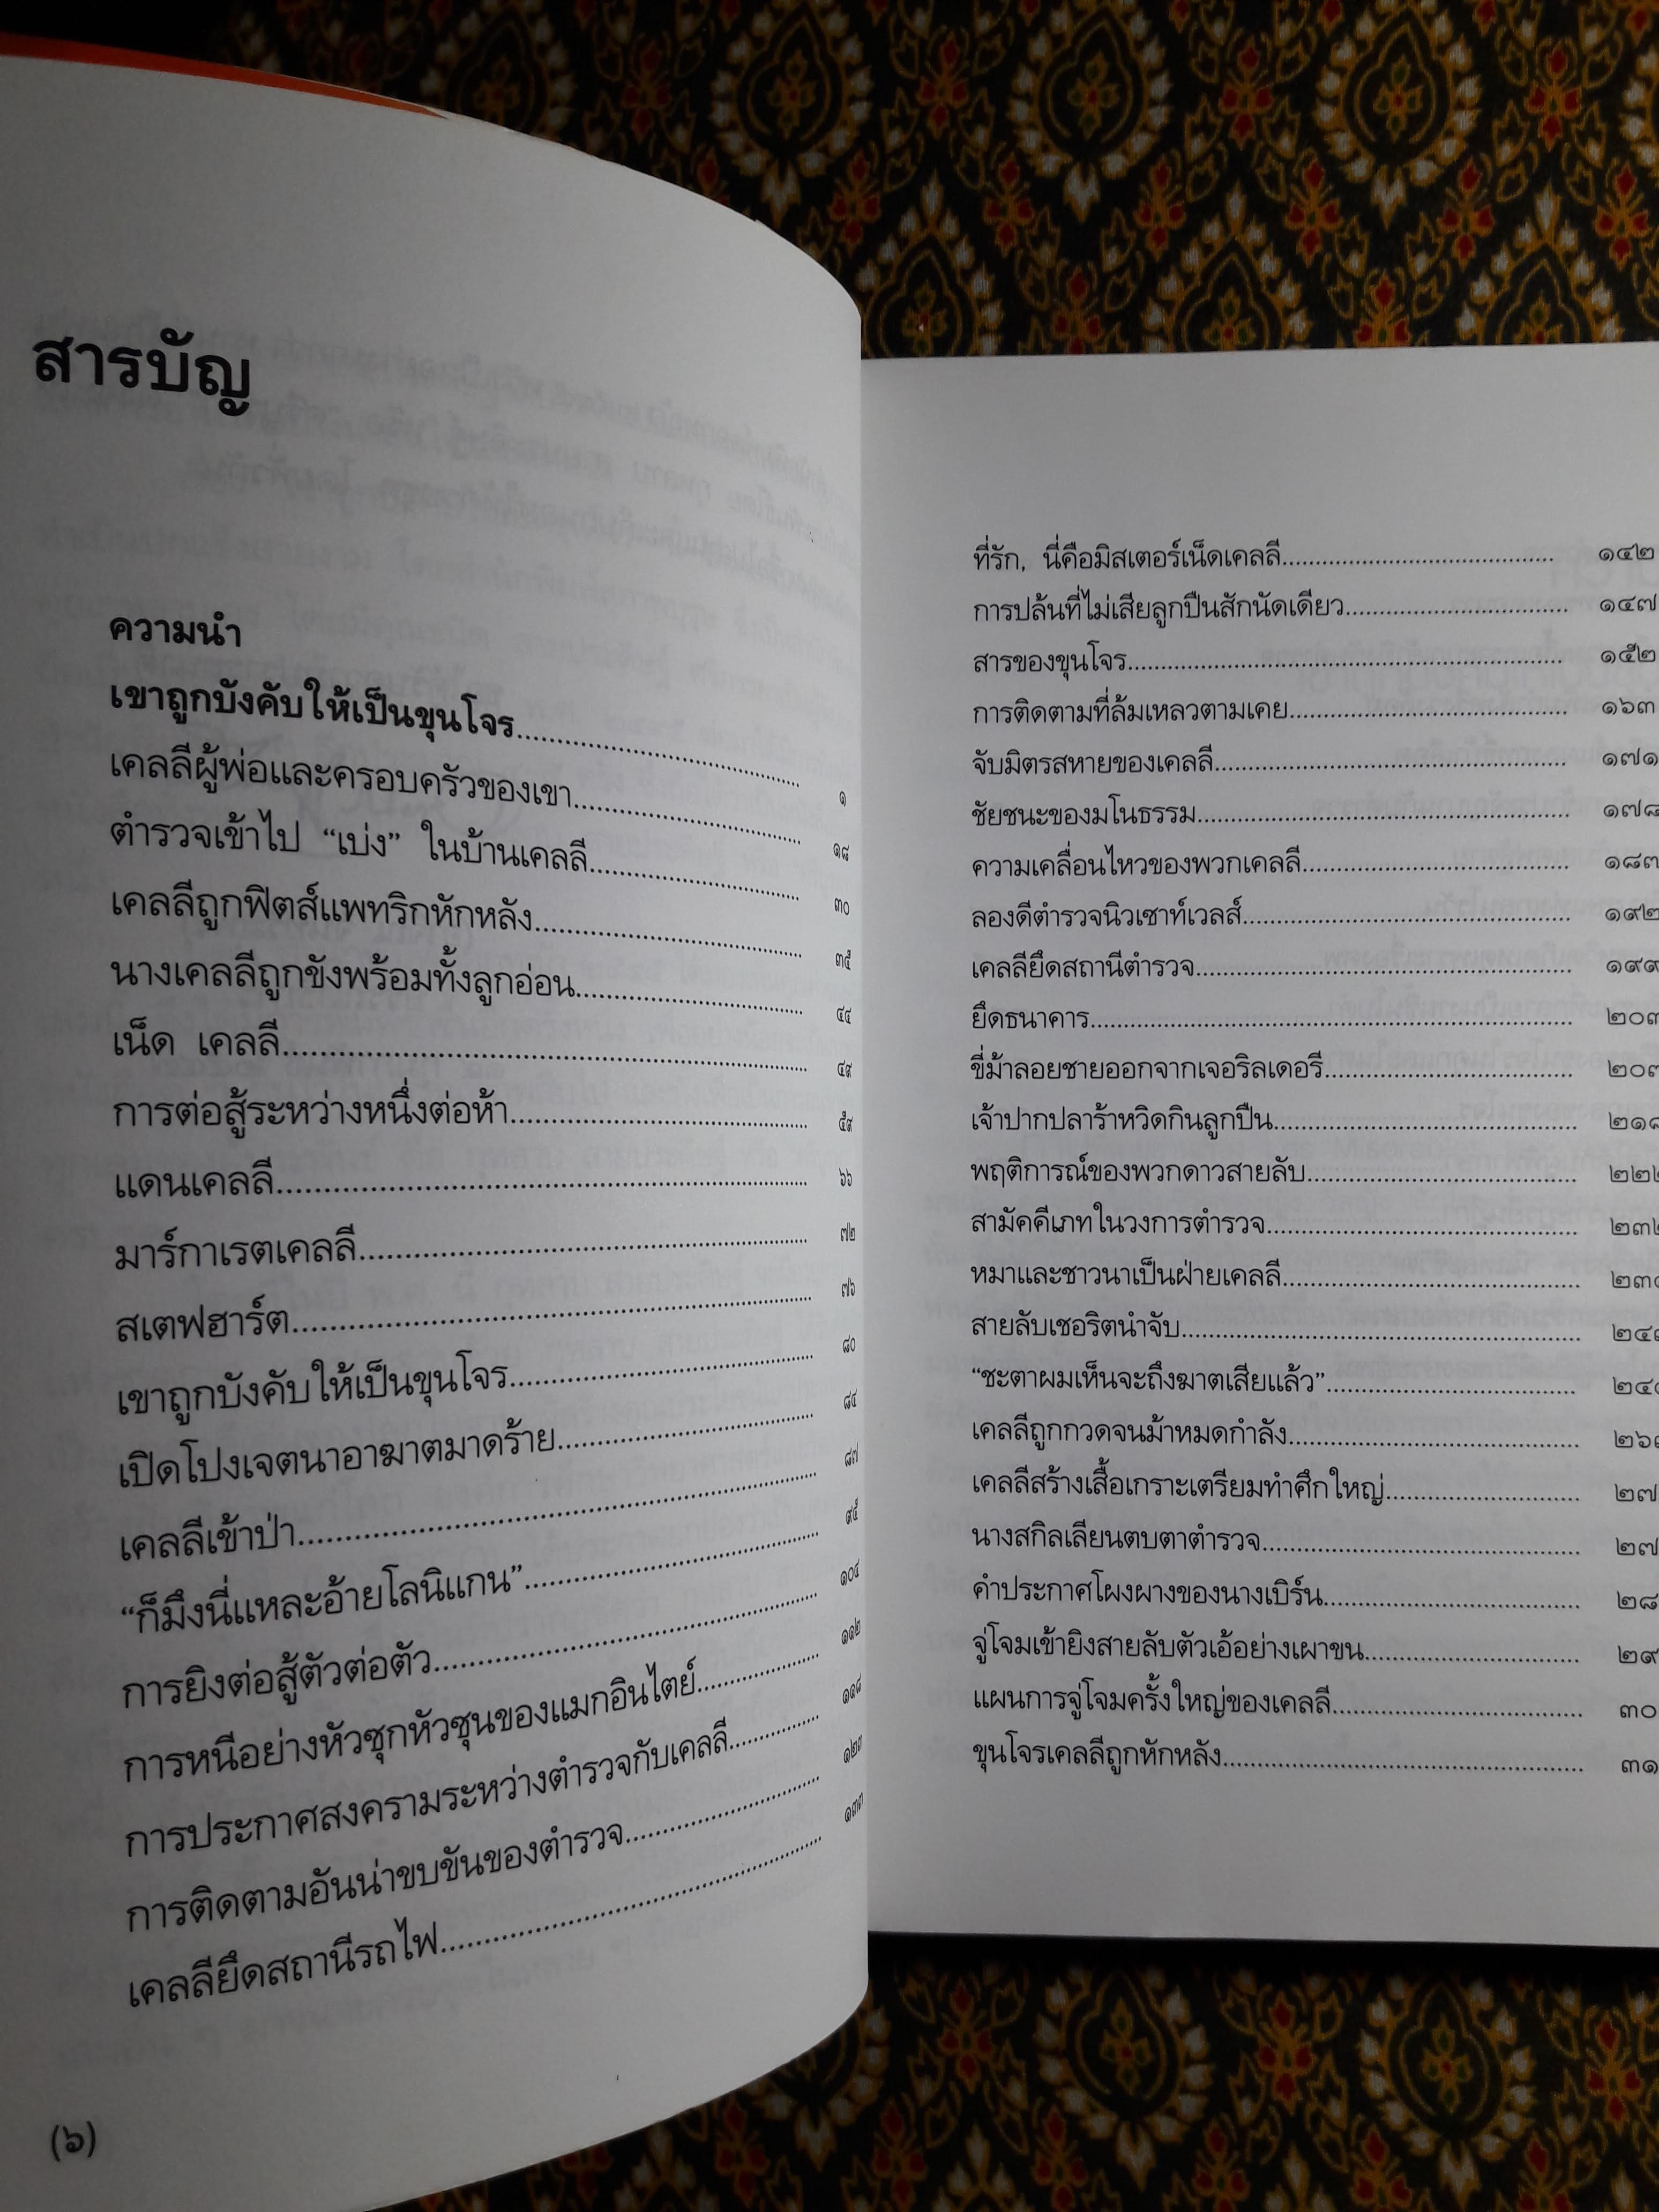 สารบัญ
ความนำ
เขาถูกบังคับให้เป็นขุนโจร.......... ๑
เคลลีผู้พ่อและครอบครัวของเขา.......... ๑๘
ตำรวจเข้าไป “เบ่ง” ในบ้านเคลลี.......... ๓๐
เคลลีถูกฟิตส์แพทริกหักหลัง.......... ๓๕
นางเคลลีถูกขังพร้อมทั้งลูกอ่อน.......... ๔๔
เน็ด เคลลี.......... ๔๙
การต่อสู้ระหว่างหนึ่งต่อห้า.......... ๕๙
แดนเคลลี.......... ๖๖
มาร์กาเรตเคลลี.......... ๗๒
สเตฟฮาร์ต.......... ๗๖
เขาถูกบังคับให้เป็นขุนโจร.......... ๘๐
เปิดโปงเจตนาอาฆาตมาดร้าย.......... ๘๔
เคลลีเข้าป่า.......... ๘๗
“ก็มึงนี่แหละอ้ายโลนิแกน”.......... ๙๕
การยิงต่อสู้ตัวต่อตัว.......... ๑๐๔
การหนีอย่างหัวซุกหัวซุนของแมกอินไตย์.......... ๑๑๒
การประกาศสงครามระหว่างตำรวจกับเคลลี.......... ๑๑๘
การติดตามอันน่าขบขันของตำรวจ.......... ๑๒๓
เคลลียึดสถานีรถไฟ.......... ๑๓๓
(๖)
ที่รัก, นี่คือมิสเตอร์เน็ดเคลลี.......... ๑๔๒
การปล้นที่ไม่เสียลูกปืนสักนัดเดียว.......... ๑๔๗
สารของขุนโจร.......... ๑๕๒
การติดตามที่ล้มเหลวตามเคย.......... ๑๖๓
จับมิตรสหายของเคลลี.......... ๑๗๑
ชัยชนะของมโนธรรม.......... ๑๗๘
ความเคลื่อนไหวของพวกเคลลี.......... ๑๘๗
ลองดีตำรวจนิวเซาท์เวลส์.......... ๑๙๒
เคลลียึดสถานีตำรวจ.......... ๑๙๙
ยึดธนาคาร.......... ๒๐๓
ขี่ม้าลอยชายออกจากเจอริลเดอรี.......... ๒๐๗
เจ้าปากปลาร้าหวิดกินลูกปืน.......... ๒๑๘
พฤติการณ์ของพวกดาวสายลับ.......... ๒๒๒
สามัคคีเภทในวงการตำรวจ.......... ๒๓๒
หมาและชาวนาเป็นฝ่ายเคลลี.......... ๒๓
สายลับเชอริตนำจับ.......... ๒๔
“ชะตาผมเห็นจะถึงฆาตเสียแล้ว”.......... ๒๔
เคลลีถูกกวดจนม้าหมดกำลัง.......... ๒๖
เคลลีสร้างเสื้อเกราะเตรียมทำศึกใหญ่.......... ๒๗
นางสกิลเลียนตบตาตำรวจ.......... ๒๗
คำประกาศโผงผางของนางเบิร์น.......... ๒๘
จู่โจมเข้ายิงสายลับตัวเอ้อย่างเผาขน.......... ๒๙
แผนการจู่โจมครั้งใหญ่ของเคลลี.......... ๓๐
ขุนโจรเคลลีถูกหักหลัง.......... ๓๑